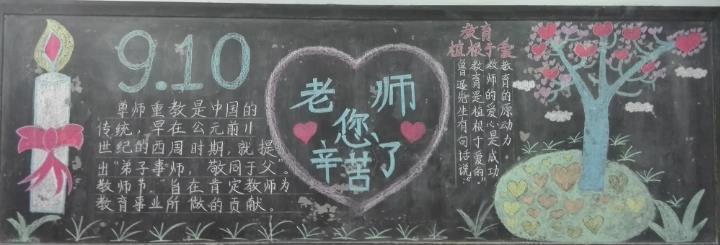 9.10
尊师重教是中国的
传统，早在公元前11
世纪的西周时期，就提
出“弟子事师，敬同于父”。
教师节，旨在肯定教师为
教育事业所做的贡献。
老师
您
辛苦了
教育
植根于爱
鲁迅先生有句话说：
“教育是植根于爱的”
教师的爱心是成功
教育的原动力。